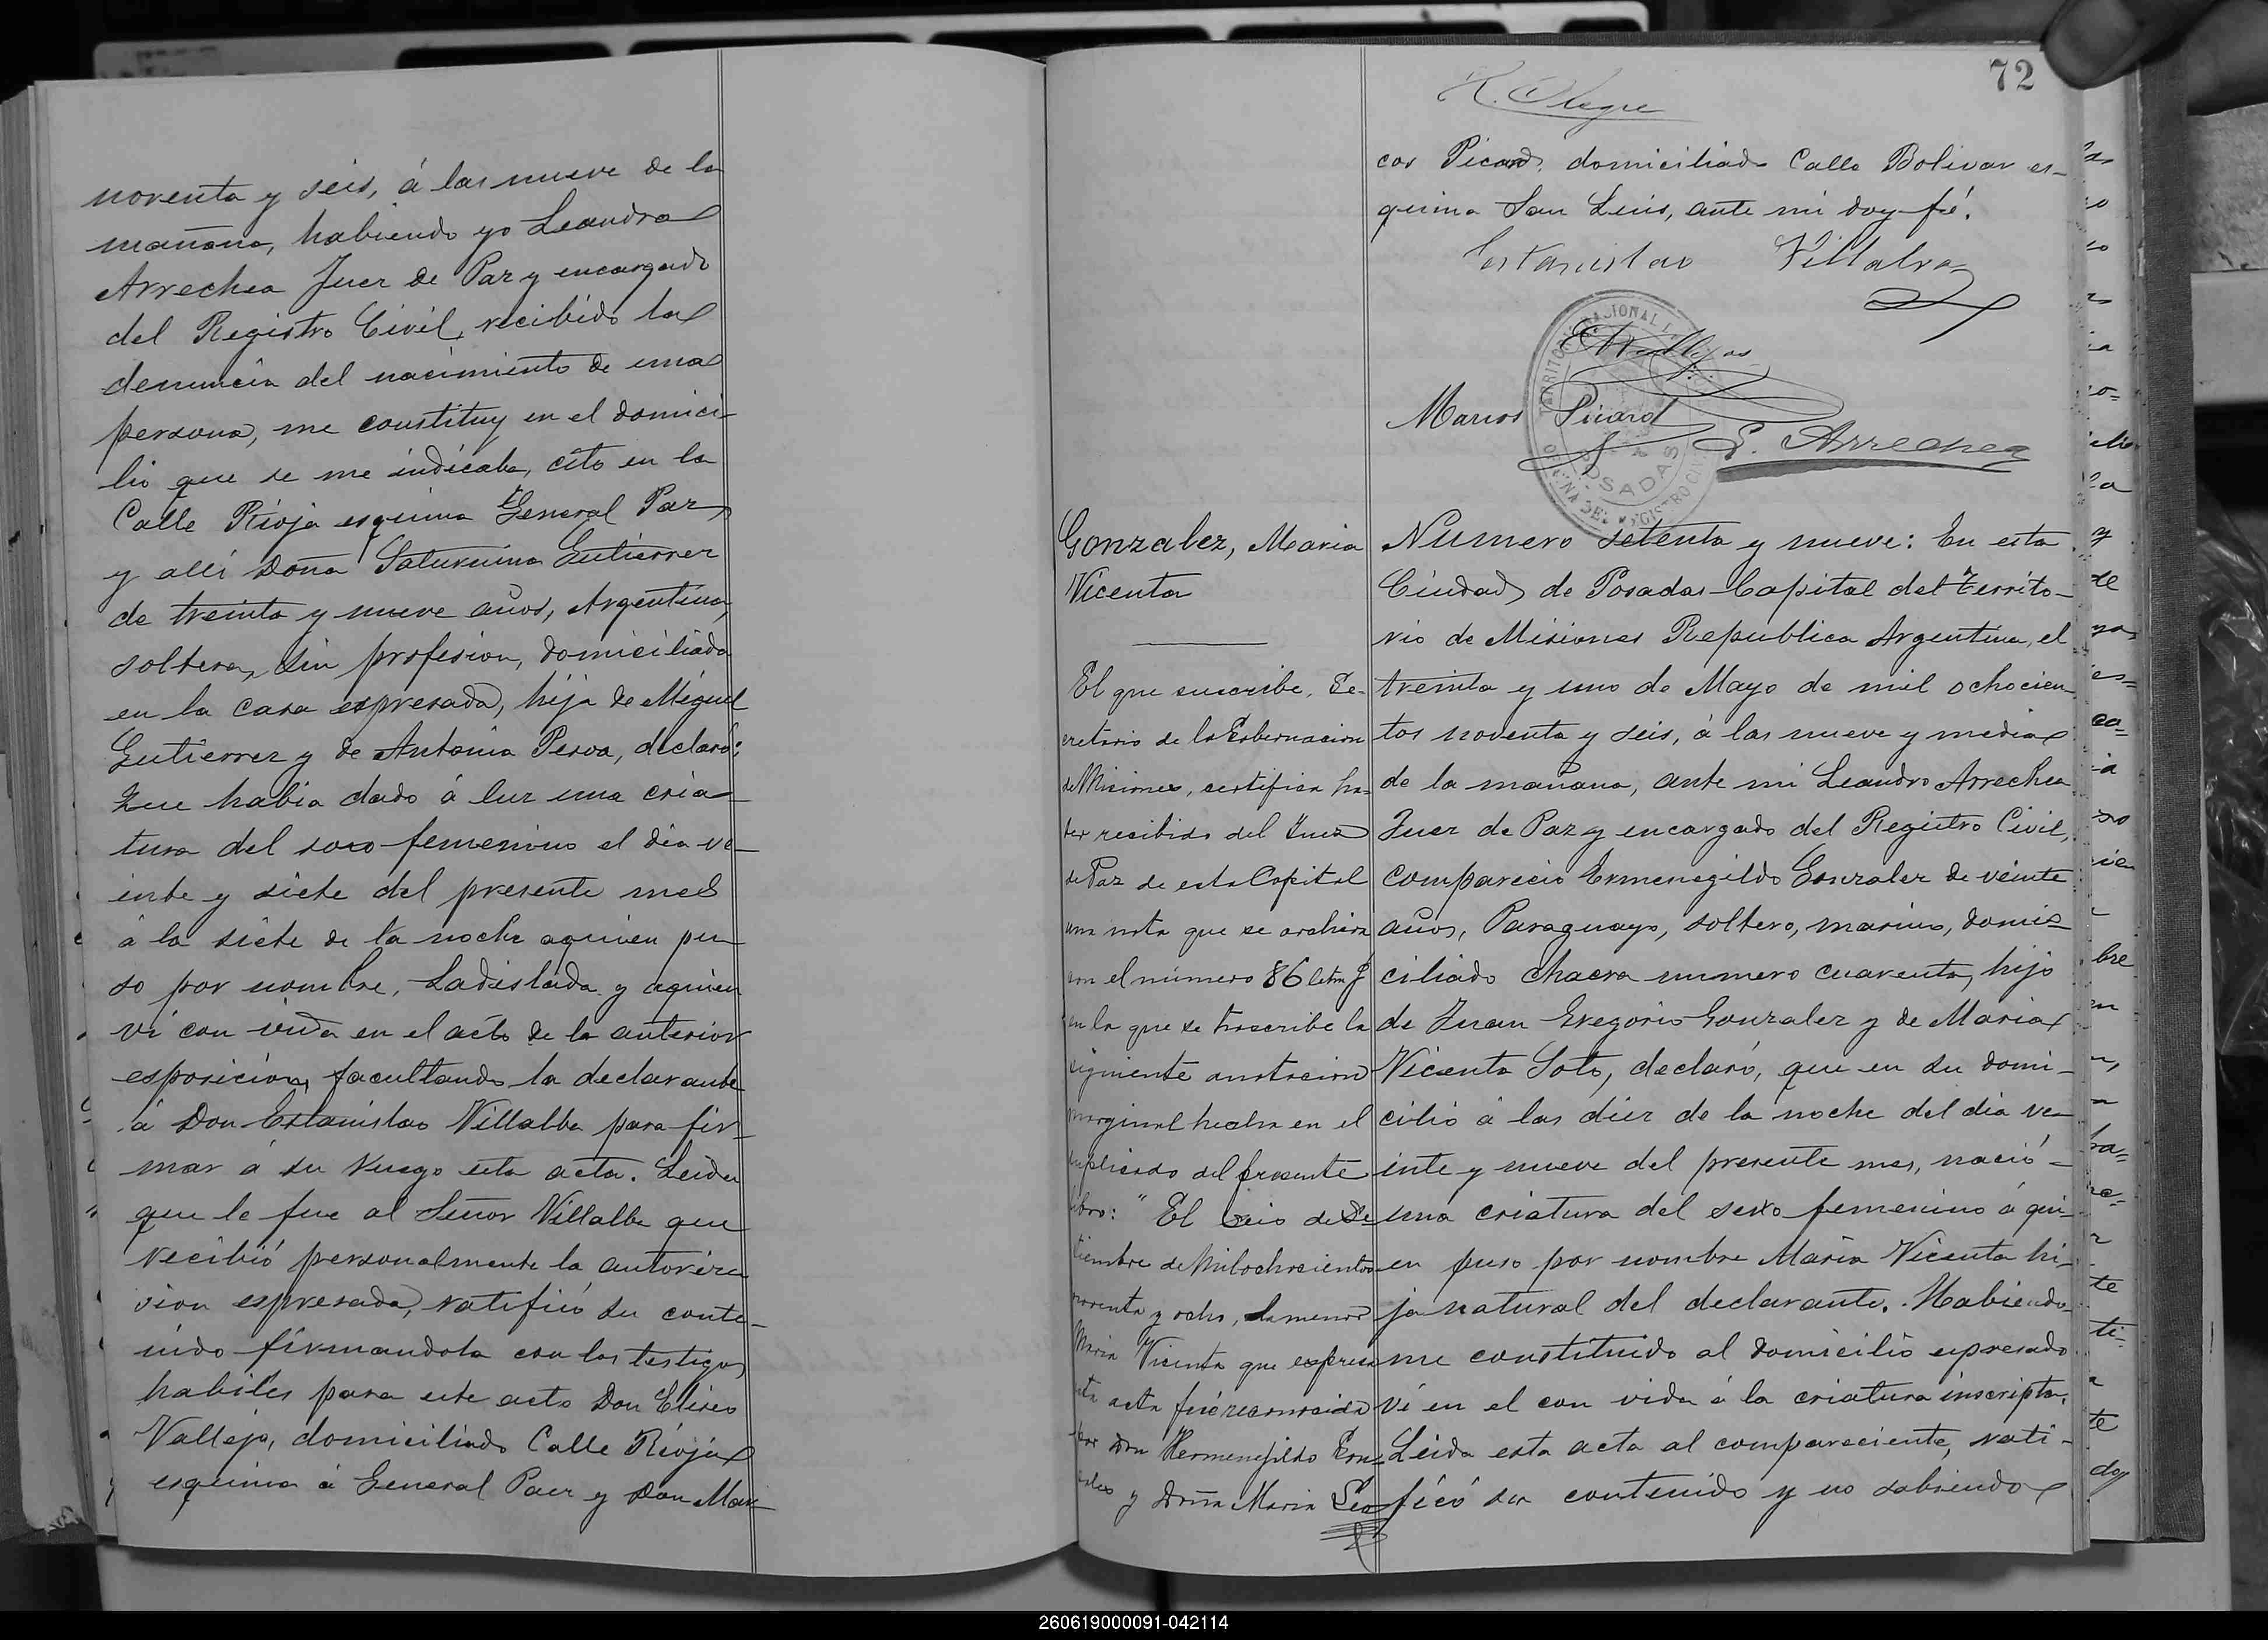 noventa y seis, á las nueve de la
mañana, habiendo yo Leandro
Arrechea Juez de Paz y encargado
del Registro Civil, recibido la
denuncia del nacimiento de una
persona, me constituy en el domici-
lio que se me indicaba, cito en la
Calle Rioja esquina General Paz,
y alli Doña Saturnina Gutierrez
de treinta y nueve años, Argentina,
soltera, sin profesion, domiciliada
en la casa espresada, hija de Miguel
Gutierrez y de Antonia Peroa, declaró:
Que habia dado á luz una cria-
tura del sexo femenino el dia ve-
inte y siete del presente mes
á la siete de la noche aquien pu-
so por nombre, Ladislada y aquien
vi con vida en el acto de la anterior
esposicion, facultando la declarante
á Don Estanislao Villalba para fir-
mar á su ruego esta acta. Leida
que le fue al Señor Villalba que
recibió personalmente la autoriza
sion espresada, ratificó su conte-
nido firmandola con los testigos
habiles para este acto Don Eliseo
Vallejo, domiciliado Calle Rioja
esquina á General Paez y Don Mar
72
R. Alegre
cos Picard, domiciliado Calle Bolivar es-
quina San Luis, ante mi doy fé.
Estanislao Villalva
E. Vallejos
Marcos Picard
L. Arrechea
TERRITORIO NACIONAL
POSADAS
OFICINA DEL REGISTRO CIVIL
Gonzalez, Maria
Vicenta
El que suscribe, Se-
cretario de la Gobernacion
de Misiones, certifica ha-
ber recibido del Juez
de Paz de esta Capital
una nota que se archiva
con el número 86 letra J
en la que se trascribe la
siguiente anotacion
marginal hecha en el
duplicado del presente
libro: "El seis de Se-
tiembre de Mil ochocientos
noventa y ocho, la menor
Maria Vicenta que expresa
esta acta fué reconocida
por Don Hermenejildo Gon-
zales y Doña Maria
Numero setenta y nueve: En esta
Ciudad de Posadas Capital del Territo-
rio de Misiones Republica Argentina, el
treinta y uno de Mayo de mil ochocien-
tos noventa y seis, á las nueve y media
de la mañana, ante mi Leandro Arrechea
Juez de Paz y encargado del Registro Civil,
comparecio Ermenegildo Gonzalez de veinte
años, Paraguayo, soltero, marino, domi-
ciliado chacra numero cuarenta, hijo
de Juan Gregorio Gonzalez y de Maria
Vicenta Soto, declaró, que en su domi-
cilio á las diez de la noche del dia ve-
inte y nueve del presente mes, nació-
una criatura del sexo femenino á qui-
en puso por nombre Maria Vicenta hi-
ja natural del declarante. Habiendo-
me constituido al domicilio espresado
vi en el con vida á la criatura inscripta.
Leida esta acta al compareciente, rati-
ficó su contenido y no sabiendo
260619000091-042114